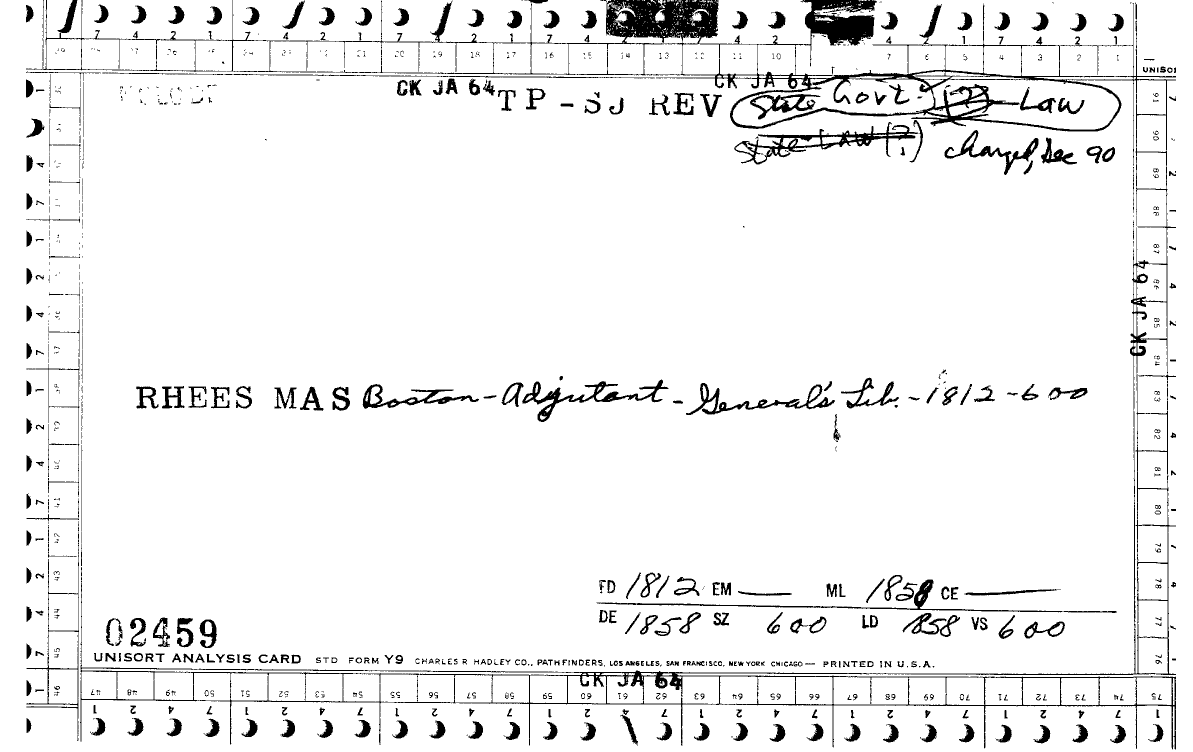 7 4 2 1 7 4 2 1 7 4 2 1 7 4 2 1 7 4 2 4 2 1 7 4 2 1
UNISOR
CK JA 64 CK JA 64
TP-SJ REV State Govt. [?] Law
State Law [?] changed, Dec 90
CK JA 64
RHEES MAS Boston - Adjutant - General's Lib. - 1812 - 600
FD 1812 EM — ML 1858 CE —
DE 1858 SZ 600 LD 1858 VS 600
02459
UNISORT ANALYSIS CARD STD FORM Y9 CHARLES R HADLEY CO., PATHFINDERS, LOS ANGELES, SAN FRANCISCO, NEW YORK CHICAGO — PRINTED IN U.S.A.
CK JA 64
47 48 49 50 51 52 53 54 55 56 57 58 59 60 61 62 63 64 65 66 67 68 69 70 71 72 73 74 75
1 2 4 7 1 2 4 7 1 2 4 7 1 2 4 7 1 2 4 7 1 2 4 7 1 2 4 7 1